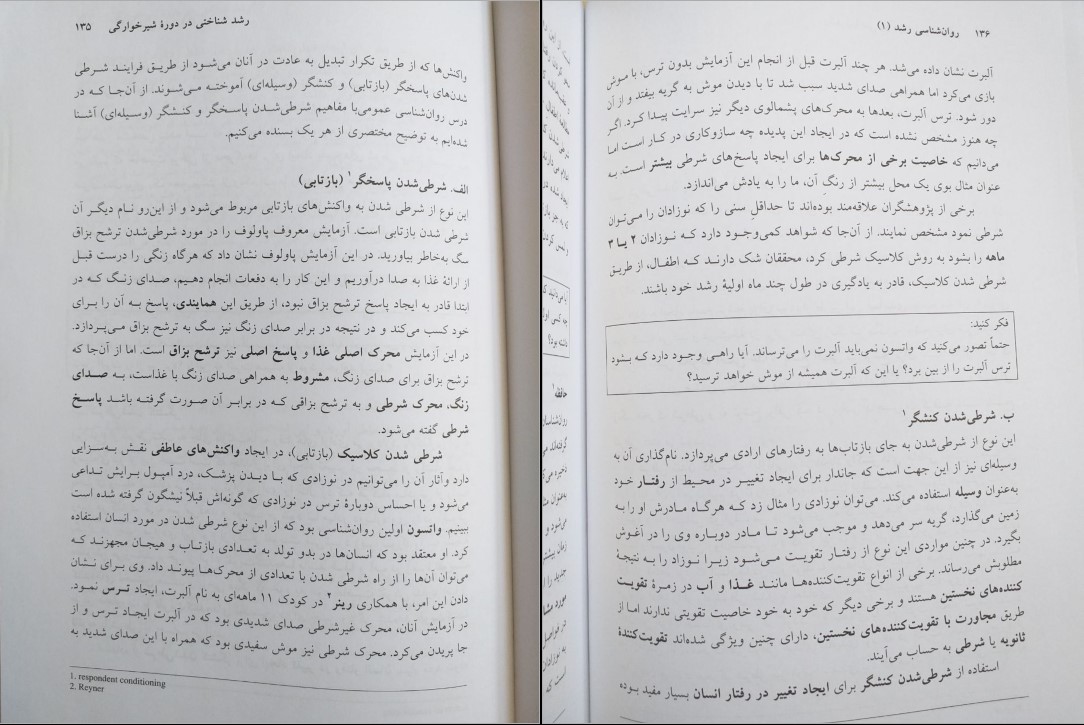 رشد شناختی در دورهٔ شیرخوارگی ۱۳۵
واکنش‌ها که از طریق تکرار تبدیل به عادت در آنان می‌شود از طریق فرایند شرطی
شدن‌های پاسخگر (بازتابی) و کنشگر (وسیله‌ای) آموخته می‌شوند. از آن‌جا که در
درس روان‌شناسی عمومی‌با مفاهیم شرطی‌شدن پاسخگر و کنشگر (وسیله‌ای) آشنا
شده‌ایم به توضیح مختصری از هر یک بسنده می‌کنیم.
الف. شرطی‌شدن پاسخگر۱ (بازتابی)
این نوع از شرطی شدن به واکنش‌های بازتابی مربوط می‌شود و از این‌رو نام دیگر آن
شرطی شدن بازتابی است. آزمایش معروف پاولوف را در مورد شرطی‌شدن ترشح بزاق
سگ به‌خاطر بیاورید. در این آزمایش پاولوف نشان داد که هرگاه زنگی را درست قبل
از ارائهٔ غذا به صدا درآوریم و این کار را به دفعات انجام دهیم، صدای زنگ که در
ابتدا قادر به ایجاد پاسخ ترشح بزاق نبود، از طریق این همایندی، پاسخ به آن را برای
خود کسب می‌کند و در نتیجه در برابر صدای زنگ نیز سگ به ترشح بزاق می‌پردازد.
در این آزمایش محرک اصلی غذا و پاسخ اصلی نیز ترشح بزاق است. اما از آن‌جا که
ترشح بزاق برای صدای زنگ، مشروط به همراهی صدای زنگ با غذاست، به صدای
زنگ، محرک شرطی و به ترشح بزاقی که در برابر آن صورت گرفته باشد پاسخ
شرطی گفته می‌شود.
شرطی شدن کلاسیک (بازتابی)، در ایجاد واکنش‌های عاطفی نقش به‌سزایی
دارد وآثار آن را می‌توانیم در نوزادی که با دیدن پزشک، درد آمپول برایش تداعی
می‌شود و یا احساس دوبارهٔ ترس در نوزادی که گونه‌اش قبلاً نیشگون گرفته شده است
ببینیم. واتسون اولین روان‌شناسی بود که از این نوع شرطی شدن در مورد انسان استفاده
کرد. او معتقد بود که انسان‌ها در بدو تولد به تعدادی بازتاب و هیجان مجهزند که
می‌توان آن‌ها را از راه شرطی شدن با تعدادی از محرک‌ها پیوند داد. وی برای نشان
دادن این امر، با همکاری رینر۲ در کودک ۱۱ ماهه‌ای به نام آلبرت، ایجاد ترس نمود.
در آزمایش آنان، محرک غیرشرطی صدای شدیدی بود که در آلبرت ایجاد ترس و از
جا پریدن می‌کرد. محرک شرطی نیز موش سفیدی بود که همراه با این صدای شدید به
1. respondent conditioning
2. Reyner
۱۳۶ روان‌شناسی رشد (۱)
آلبرت نشان داده می‌شد. هر چند آلبرت قبل از انجام این آزمایش بدون ترس، با موش
بازی می‌کرد اما همراهی صدای شدید سبب شد تا با دیدن موش به گریه بیفتد و از آن
دور شود. ترس آلبرت، بعدها به محرک‌های پشمالوی دیگر نیز سرایت پیدا کرد. اگر
چه هنوز مشخص نشده است که در ایجاد این پدیده چه سازوکاری در کار است اما
می‌دانیم که خاصیت برخی از محرک‌ها برای ایجاد پاسخ‌های شرطی بیشتر است. به
عنوان مثال بوی یک محل بیشتر از رنگِ آن، ما را به یادش می‌اندازد.
برخی از پژوهشگران علاقه‌مند بوده‌اند تا حداقلِ سنی را که نوزادان را می‌توان
شرطی نمود مشخص نمایند. از آن‌جا که شواهد کمی‌وجود دارد که نوزادان ۲ یا ۳
ماهه را بشود به روش کلاسیک شرطی کرد، محققان شک دارند که اطفال، از طریق
شرطی شدن کلاسیک، قادر به یادگیری در طول چند ماه اولیهٔ رشد خود باشند.
فکر کنید:
حتماً تصور می‌کنید که واتسون نمی‌باید آلبرت را می‌ترساند. آیا راهی وجود دارد که بشود
ترس آلبرت را از بین برد؟ یا این که آلبرت همیشه از موش خواهد ترسید؟
ب. شرطی‌شدن کنشگر۱
این نوع از شرطی‌شدن به جای بازتاب‌ها به رفتارهای ارادی می‌پردازد. نام‌گذاری آن به
وسیله‌ای نیز از این جهت است که جاندار برای ایجاد تغییر در محیط از رفتار خود
به‌عنوان وسیله استفاده می‌کند. می‌توان نوزادی را مثال زد که هرگاه مادرش او را به
زمین می‌گذارد، گریه سر می‌دهد و موجب می‌شود تا مادر دوباره وی را در آغوش
بگیرد. در چنین مواردی این نوع از رفتار تقویت می‌شود زیرا نوزاد را به نتیجهٔ
مطلوبش می‌رساند. برخی از انواع تقویت‌کننده‌ها مانند غذا و آب در زمرهٔ تقویت
کننده‌های نخستین هستند و برخی دیگر که خود به خود خاصیت تقویتی ندارند اما از
طریق مجاورت با تقویت‌کننده‌های نخستین، دارای چنین ویژگی شده‌اند تقویت‌کنندهٔ
ثانویه یا شرطی به حساب می‌آیند.
استفاده از شرطی‌شدن کنشگر برای ایجاد تغییر در رفتار انسان بسیار مفید بوده